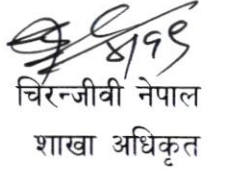 ४/१९
चिरन्जीवी नेपाल
शाखा अधिकृत